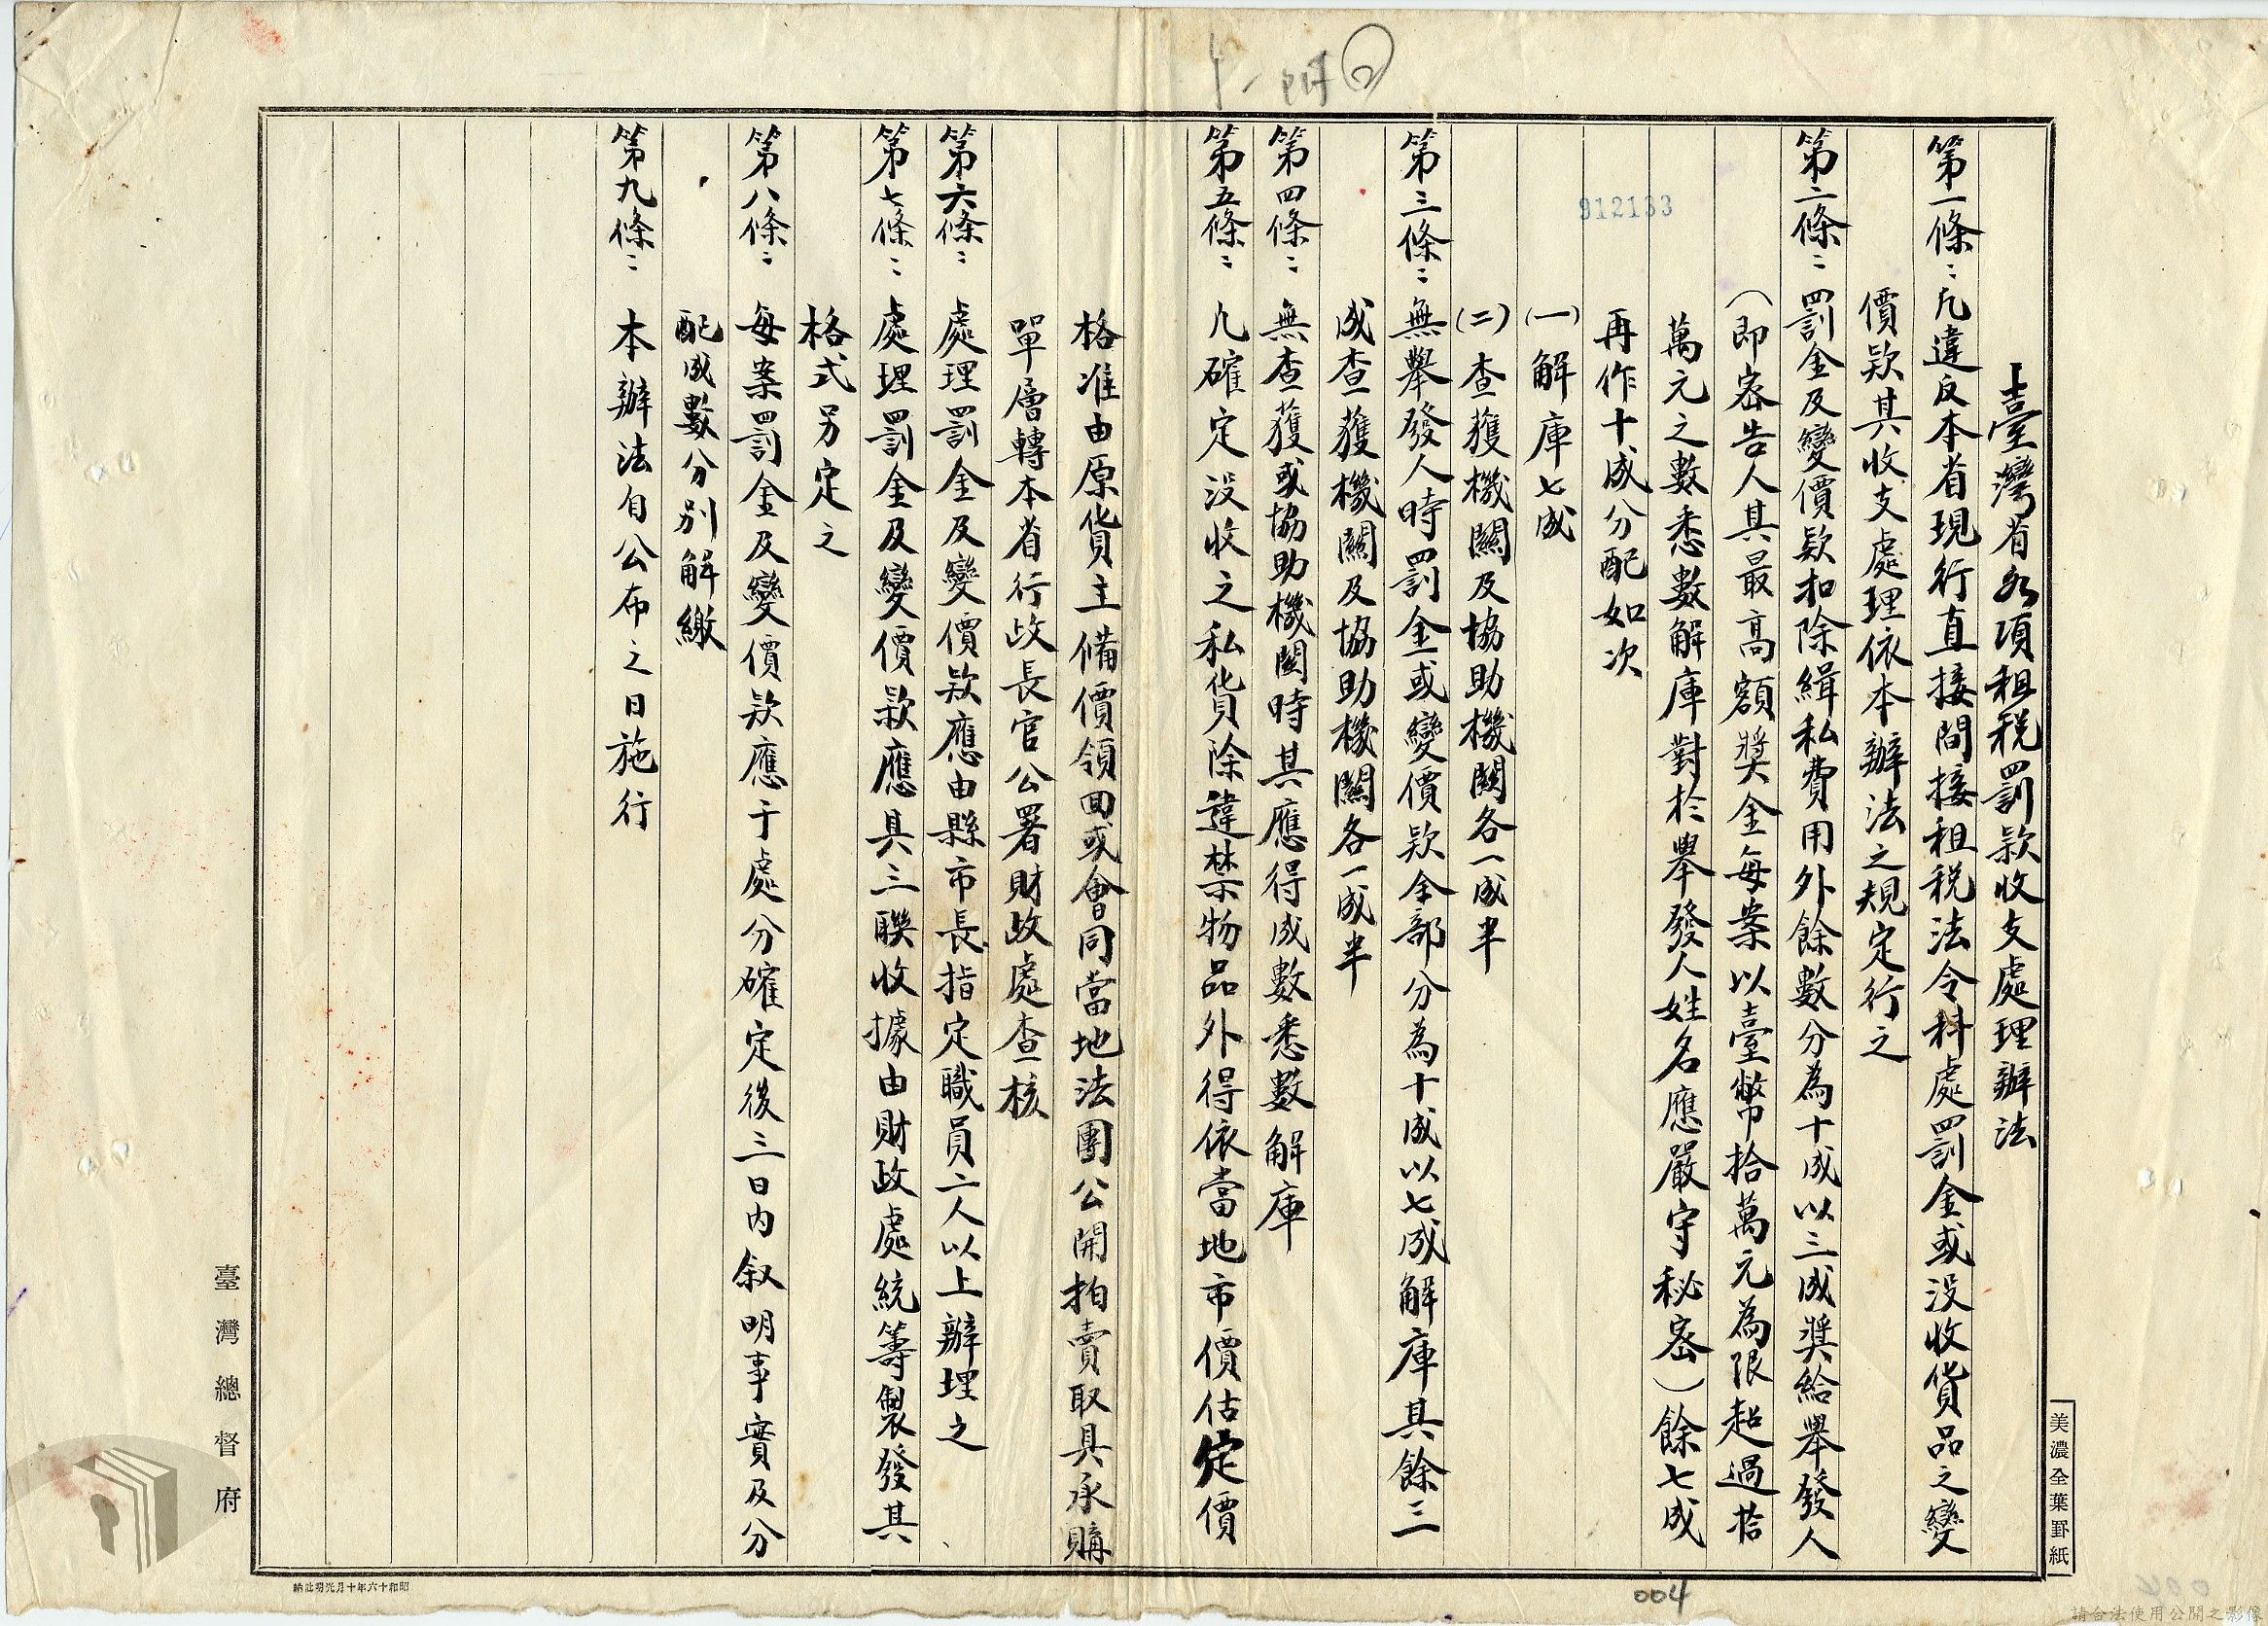 臺灣省各項租稅罰款收支處理辦法
第一條：凡違反本省現行直接間接租稅法令科處罰金或沒收貨品之變
價款其收支處理依本辦法之規定行之
第二條：罰金及變價款扣除緝私費用外餘數分為十成以三成獎給舉發人
（即密告人其最高額獎金每案以臺幣拾萬元為限超過拾
萬元之數悉數解庫對於舉發人姓名應嚴守秘密）餘七成
再作十成分配如次
（一）解庫七成
（二）查獲機關及協助機關各一成半
第三條：無舉發人時罰金或變價款全部分為十成以七成解庫其餘三
成查獲機關及協助機關各一成半
第四條：無查獲或協助機關時其應得成數悉數解庫
第五條：凡確定沒收之私貨除違禁物品外得依當地市價估定價
格准由原貨主備價領回或會同當地法團公開拍賣取具承購
單層轉本省行政長官公署財政處查核
第六條：處理罰金及變價款應由縣市長指定職員二人以上辦理之
第七條：處理罰金及變價款應具三聯收據由財政處統籌製發其
格式另定之
第八條：每案罰金及變價款應于處分確定後三日內叙明事實及分
配成數分別解繳
第九條：本辦法自公布之日施行
912133
臺灣總督府
美濃全葉罫紙
004
請合法使用公開之影像